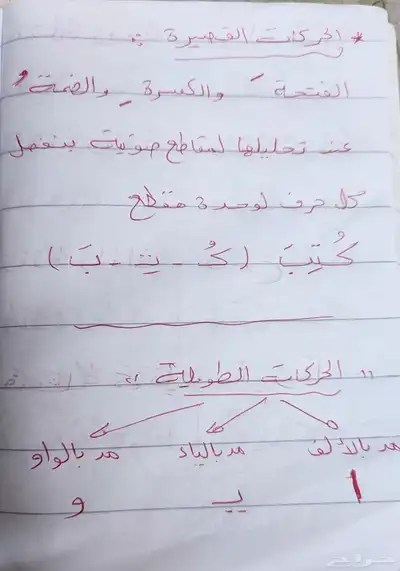 * الحركات القصيرة :.
الفتحة َ والكسرة ِ والضمة ُ
عند تحليلها لمقاطع صوتية ينفصل
كل حرف لوحدة مقطع
كُتِبَ (كُ - تِ - بَ)
" الحركات الطويلة "
مد بالألف مد بالياء مد بالواو
ا يـ و
حراج